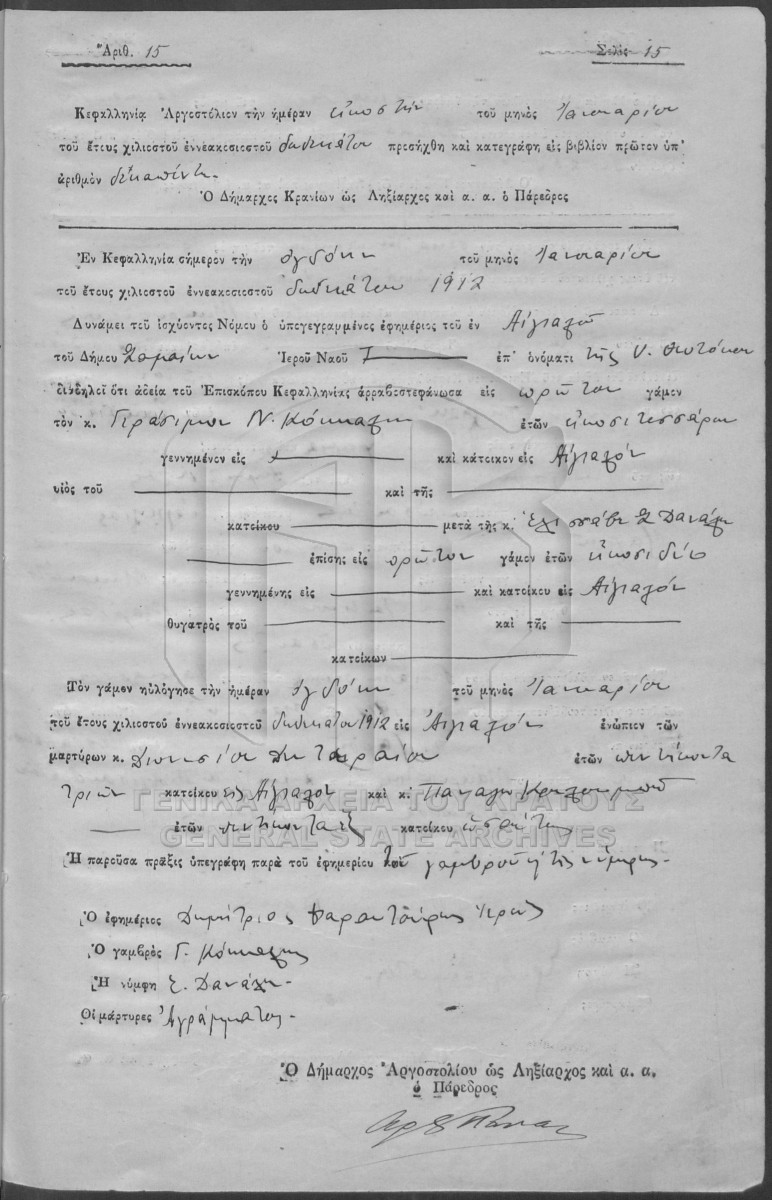 Ἀριθ. 15 Σελὶς 15
Κεφαλληνία Ἀργοστόλιον τὴν ἡμέραν εἰκοστὴν τοῦ μηνὸς Ἰανουαρίου
τοῦ ἔτους χιλιοστοῦ ἐννεακοσιοστοῦ δωδεκάτου προσήχθη καὶ κατεγράφη εἰς βιβλίον πρῶτον ὑπ'
ἀριθμὸν δεκαπέντε
Ὁ Δήμαρχος Κρανίων ὡς Ληξίαρχος καὶ α. α. ὁ Πάρεδρος
Ἐν Κεφαλληνίᾳ σήμερον τὴν ὀγδόην τοῦ μηνὸς Ἰανουαρίου
τοῦ ἔτους χιλιοστοῦ ἐννεακοσιοστοῦ δωδεκάτου 1912
Δυνάμει τοῦ ἰσχύοντος Νόμου ὁ ὑπογεγραμμένος ἐφημέριος τοῦ ἐν Αἰγιαλῷ
τοῦ Δήμου Σαμαίων Ἱεροῦ Ναοῦ ἐπ' ὀνόματι τῆς Υ. Θεοτόκου
διαδηλοῖ ὅτι ἀδείᾳ τοῦ Ἐπισκόπου Κεφαλληνίας ἀρραβοστεφάνωσα εἰς πρῶτον γάμον
τὸν κ. Γεράσιμον Ν. ἐτῶν εἰκοσιτεσσάρων
γεννημένον εἰς καὶ κάτοικον εἰς Αἰγιαλόν
υἱὸς τοῦ καὶ τῆς
κατοίκου μετὰ τῆς κ. Ἐλισσάβετ Σ
ἐπίσης εἰς πρῶτον γάμον ἐτῶν εἰκοσιδύο
γεννημένης εἰς καὶ κατοίκου εἰς Αἰγιαλόν
θυγατρὸς τοῦ καὶ τῆς
κατοίκων
Τὸν γάμον ηὐλόγησε τὴν ἡμέραν ὀγδόην τοῦ μηνὸς Ἰανουαρίου
τοῦ ἔτους χιλιοστοῦ ἐννεακοσιοστοῦ δωδεκάτου 1912 εἰς Αἰγιαλόν ἐνώπιον τῶν
μαρτύρων κ. Διονυσίου ἐτῶν πεντήκοντα
τριῶν κατοίκου εἰς Αἰγιαλόν καὶ κ. Παναγῆ
ἐτῶν πεντήκοντα ἓξ κατοίκου ὡσαύτως
ΓΕΝΙΚΑ ΑΡΧΕΙΑ ΤΟΥ ΚΡΑΤΟΥΣ
GENERAL STATE ARCHIVES
Ἡ παροῦσα πρᾶξις ὑπεγράφη παρὰ τοῦ ἐφημερίου τοῦ γαμβροῦ τῆς νύμφης
Ὁ ἐφημέριος Δημήτριος
Ὁ γαμβρὸς Γ.
Ἡ νύμφη Ε.
Οἱ μάρτυρες Ἀγράμματοι
Ὁ Δήμαρχος Ἀργοστολίου ὡς Ληξίαρχος καὶ α. α.
ὁ Πάρεδρος